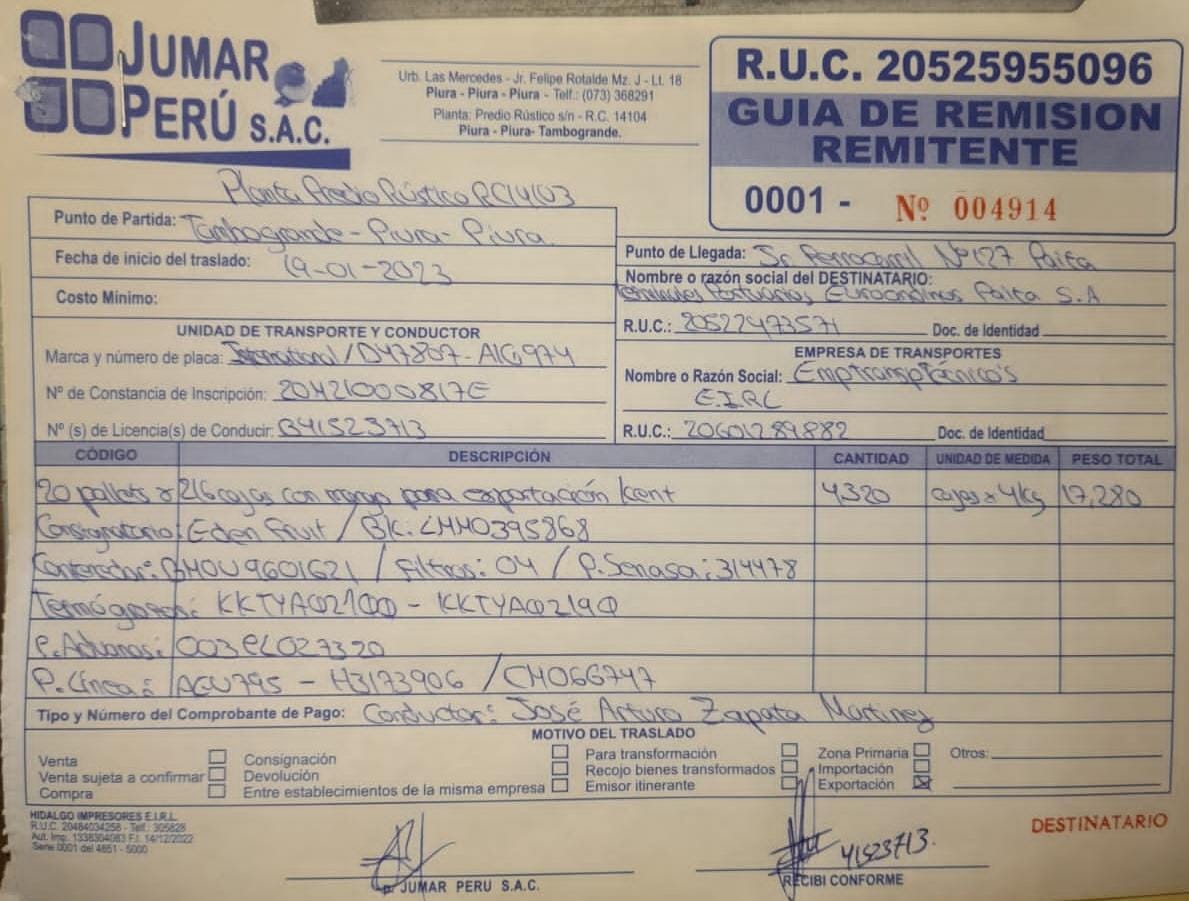 JUMAR
PERÚ S.A.C.
Urb. Las Mercedes - Jr. Felipe Rotalde Mz. J - Lt. 18
Piura - Piura - Piura - Telf.: (073) 368291
Planta: Predio Rústico s/n - R.C. 14104
Piura - Piura- Tambogrande.
R.U.C. 20525955096
GUIA DE REMISION
REMITENTE
0001 - Nº 004914
Planta Predio Rústico RC14103
Punto de Partida: Tambogrande - Piura - Piura
Fecha de inicio del traslado: 19-01-2023
Costo Mínimo:
Punto de Llegada: Jr Ferrocarril Nº127 Paita
Nombre o razón social del DESTINATARIO:
Terminales Portuarios Euroandinos Paita S.A
R.U.C.: 20522473571 Doc. de Identidad
UNIDAD DE TRANSPORTE Y CONDUCTOR
Marca y número de placa: International / D47807 - A1G974
Nº de Constancia de Inscripción: 20421000817E
Nº (s) de Licencia(s) de Conducir: B41523713
EMPRESA DE TRANSPORTES
Nombre o Razón Social: Emptransptecnico's
E.I.R.L
R.U.C.: 20601289882 Doc. de Identidad
CÓDIGO DESCRIPCIÓN CANTIDAD UNIDAD DE MEDIDA PESO TOTAL
20 pallets x 216 cajas con mango para exportación Kent 4,320 cajas x 4kg 17,280
Consignatario: Eden Fruit / BK: LMM0395868
Contenedor: BMOU9601621 / Filtros: 04 / P. Senasa: 314478
Termógrafos: KKTYA02100 - KKTYA02190
P. Aduanas: 003
P. Línea: - H3173906 / CM066747
Tipo y Número del Comprobante de Pago: Conductor: José Arturo Zapata Martinez
MOTIVO DEL TRASLADO
Venta
Venta sujeta a confirmar
Compra
Consignación
Devolución
Entre establecimientos de la misma empresa
Para transformación
Recojo bienes transformados
Emisor itinerante
Zona Primaria
Importación
Exportación
Otros:
HIDALGO IMPRESORES E.I.R.L.
R.U.C. 20484034258 - Telf.: 305828
Aut. Imp. 1338304083 F.I. 14/12/2022
Serie 0001 del 4651 - 5000
DESTINATARIO
41523713.
p. JUMAR PERU S.A.C.
RECIBI CONFORME